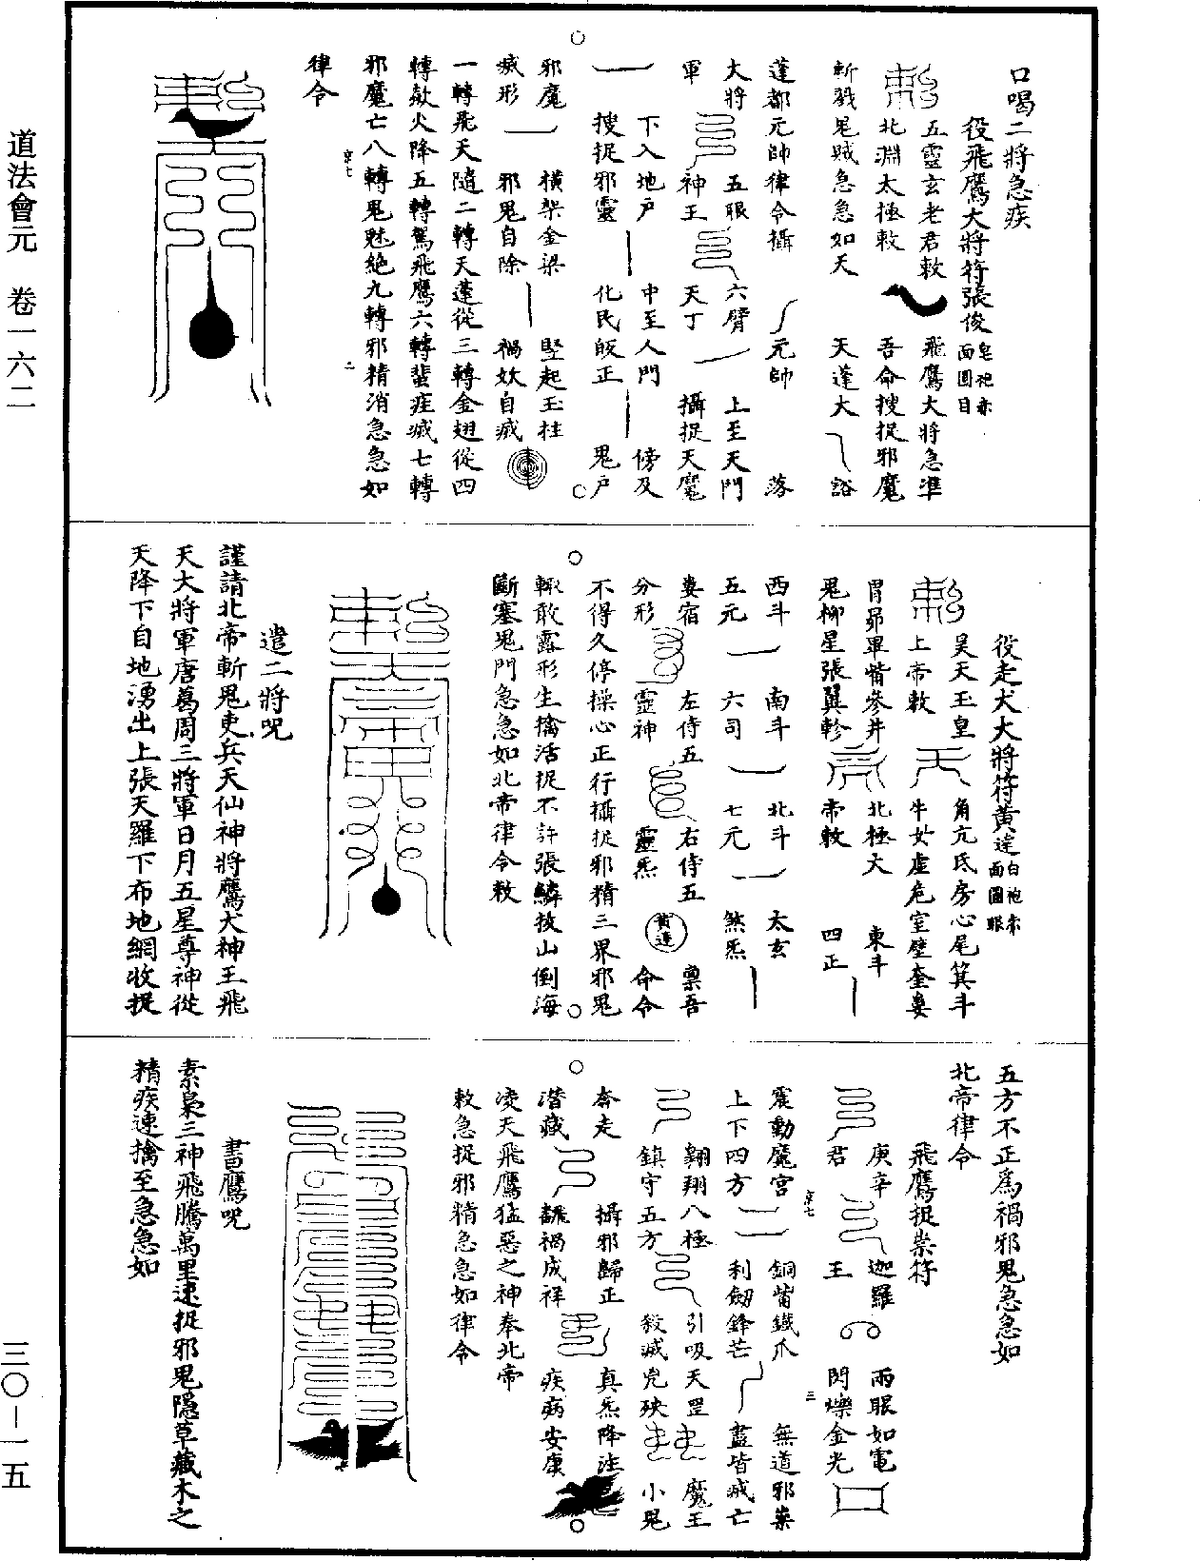 道法會元　卷一六二
三〇—一五
口喝二將急疾
役飛鷹大將符張俊皂袍赤面圓目
五靈玄老君敕
北淵太極敕
飛鷹大將急準
吾命搜捉邪魔
斬戮鬼賊急急如天
天蓬大
谿
落
元帥
蓬都元帥律令攝
大將
軍
五眼
神王
六臂
天丁
上至天門
攝捉天魔
下入地戶
搜捉邪靈
中至人門
化民皈正
傍及
鬼戶
邪魔
滅形
橫架金梁
邪鬼自除
豎起玉柱
禍妖自滅
一轉飛天隨二轉天蓬從三轉金翅從四
轉歘火降五轉駕飛鷹六轉蜚痓滅七轉
邪魔亡八轉鬼魅絕九轉邪精消急急如
律令
役走犬大將符黃達白袍赤面圓眼
昊天玉皇
上帝敕
角亢氐房心尾箕斗
牛女虛危室壁奎婁
胃昴畢觜參井
鬼柳星張翼軫
北極大
帝敕
東斗
四正
西斗
五元
南斗
六司
北斗
七元
太玄
煞炁
婁宿
分形
左侍五
靈神
右侍五
靈炁
黃達
稟吾
命令
不得久停操心正行攝捉邪精三界邪鬼
輙敢露形生擒活捉不許張鱗拔山倒海
斷塞鬼門急急如北帝律令敕
遣二將呪
謹請北帝斬鬼吏兵天仙神將鷹犬神王飛
天大將軍唐葛周三將軍日月五星尊神從
天降下自地湧出上張天羅下布地網收捉
五方不正爲禍邪鬼急急如
北帝律令
飛鷹捉祟符
庚辛
君
迦羅
王
兩眼如電
閃爍金光
震動魔宮
上下四方
銅觜鐵爪
利劒鋒芒
無道邪祟
盡皆滅亡
翺翔八極
鎮守五方
引吸天罡
殺滅兇殃
魔王
小鬼
奔走
潛藏
攝邪歸正
飜禍成祥
真炁降注
疾病安康
凌天飛鷹猛惡之神奉北帝
敕急捉邪精急急如律令
書鷹呪
素梟三神飛騰萬里速捉邪鬼隱草藏木之
精疾速擒至急急如